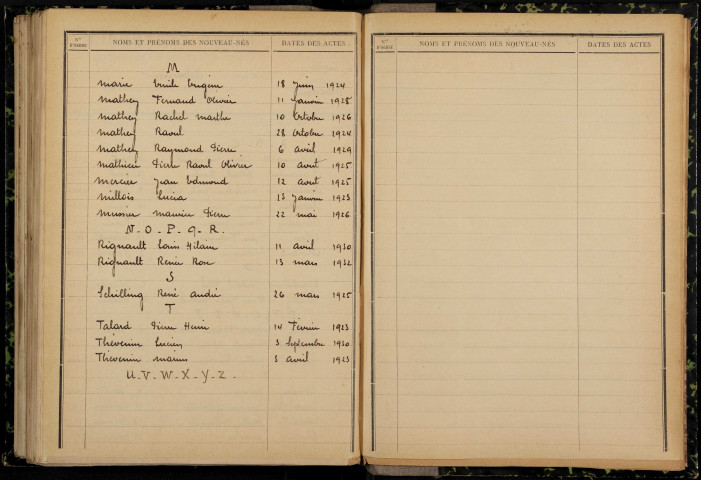 N° D'ORDRE NOMS ET PRÉNOMS DES NOUVEAU-NÉS DATES DES ACTES
M
Marie Emile Eugène 18 juin 1924
Mathey Fernand Olivier 11 janvier 1928
Mathey Rachel Marthe 10 octobre 1926
Mathey Raoul 28 octobre 1924
Mathey Raymond Pierre 6 avril 1929
Mathieu Pierre Raoul Olivier 10 août 1925
Mercier Jean Edmond 12 août 1925
Millois Lucia 13 janvier 1923
Maurice Pierre 22 mai 1926
N - O - P - Q - R.
Rignault Louis Hilaire 11 avril 1930
Rignault Renée Rose 13 mars 1932
S
Schilling René André 26 mars 1925
T
Talard Pierre Henri 14 Février 1923
Thévenin Lucien 3 Septembre 1930
Thévenin Marius 3 avril 1923
U - V - W - X - Y - Z -
N° D'ORDRE NOMS ET PRÉNOMS DES NOUVEAU-NÉS DATES DES ACTES